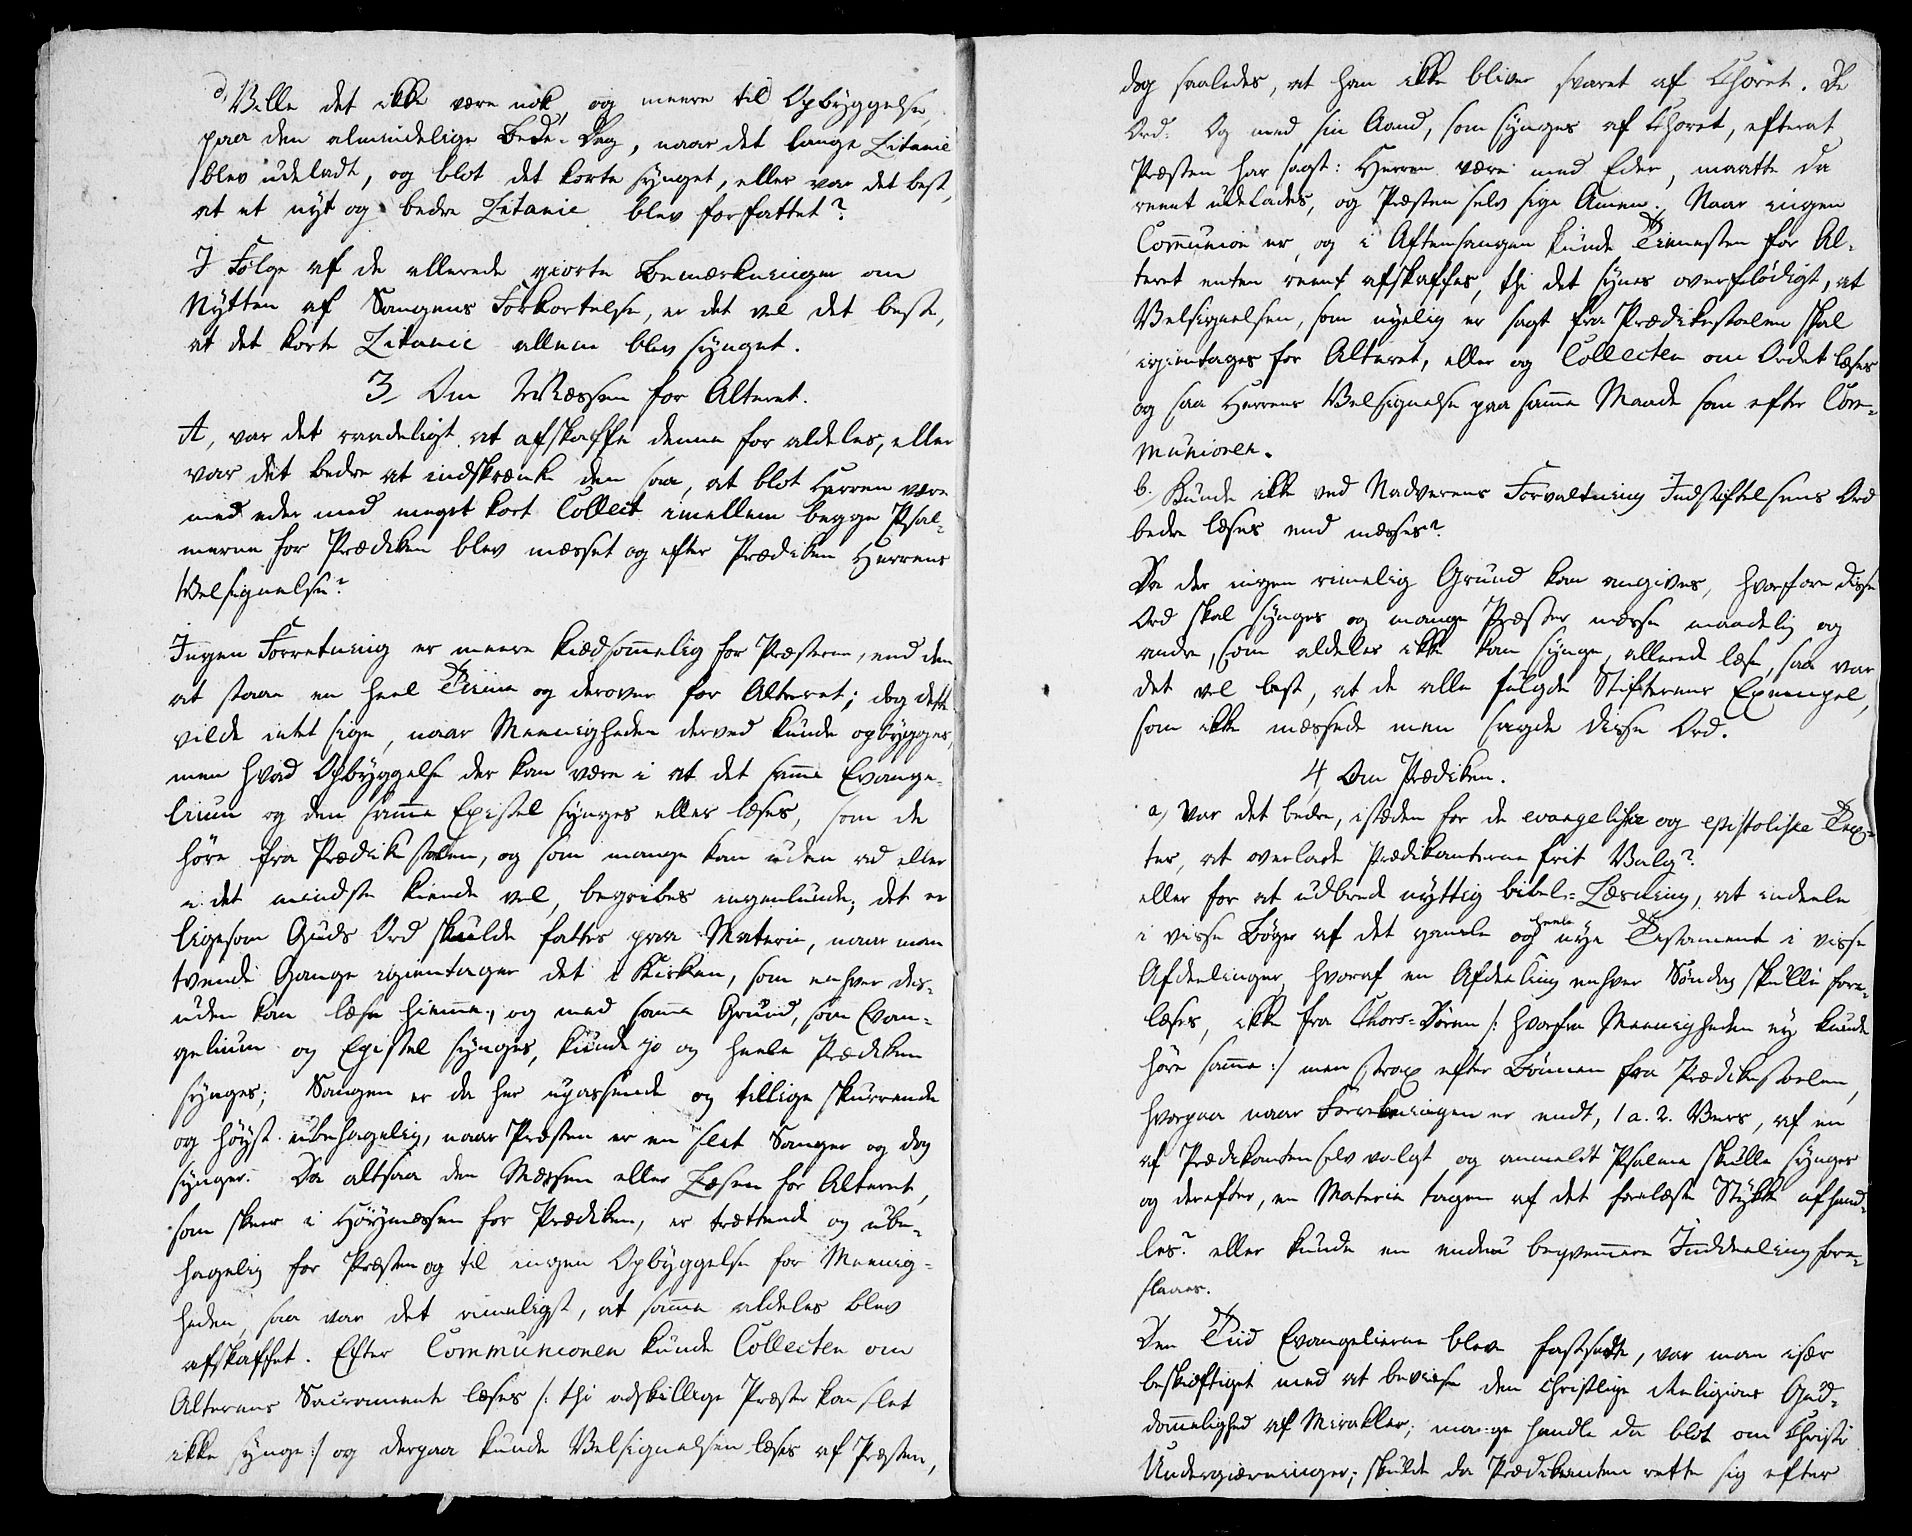 d, Ville det ikke være nok, og meere til Opbyggelse,
paa den almindelige Bede-Dag, naar det lange Litanie
blev udeladt, og blot det korte synget, eller var det best,
at et nyt og bedre Litanie blev forfattet?
I Følge af de allerede giorte Bemærkninger om
Nytten af Sangens Forkortelse, er det vel det beste,
at det korte Litanie allene blev synget.
3, Om Messen for Alteret.
A, var det raadeligt at afskaffe denne for aldeles, eller
var det bedre at indskrænke den saa, at blot Herren være
med eder med meget kort Collect imellem begge Psal-
merne for Prædiken blev messet og efter Prædiken Herrens
Velsignelse?
Ingen Forretning er meere kiedsommelig for Præsterne, end den
at staae en heel Time og derover for Alteret; dog dette
vilde intet sige, naar Meenigheden derved kunde opbygges,
men hvad Opbyggelse der kan være i at det samme Evange-
lium og den samme Epistel synges eller læses, som de
høre fra Prædikestolen, og som mange kan uden ad eller
i det mindste kiende vel, begribes ingenlunde; det er
ligesom Guds Ord skulde fattes paa Materie, naar man
tvende Gange igientager det i Kirken, som enhver des-
uden kan læse hiemme, og med samme Grund, som Evan-
gelium og Epistel synges, kunde jo og heele Prædiken
synges; Sangen er da her upassende og tillige skurrende
og høyst ubehagelig, naar Præsten er en slet Sanger og dog
synger. Da altsaa den Messen eller Læsen for Alteret,
som skeer i Høymessen for Prædiken, er trættende og ube-
hagelig for Præsten og til ingen Opbyggelse for Meenig-
heden, saa var det rimeligst, at samme aldeles blev
afskaffet. Efter Communionen kunde Collecten om
Alterens Sacramente læses /: thi adskillige Præster kan slet
ikke synge :/ og derpaa kunde Velsignelsen læses af Præsten,
dog saaledes, at han ikke bliver svaret af Choret. De
Ord: Og med sin Aand, som synges af Choret, efterat
Præsten har sagt: Herren være med Eder, maatte da
reent udelades, og Præsten selv sige Amen. Naar ingen
Communion er, og i Aftensangen kunde Tienesten for Al-
teret enten reent afskaffes, thi det synes overflødigt, at
Velsignelsen, som nyelig er sagt fra Prædikestoelen skal
igientages for Alteret, eller og Collecten om Ordet læses
og saa Herrens Velsignelse paa samme Maade som efter Com-
munionen.
b. Kunde ikke ved Nadverens Forvaltning Indstiftelsens Ord
bedre læses end messes?
Da der ingen rimelig Grund kan angives, hvorfore disse
Ord skal synges og mange Præster messe maadelig og
andre, som aldeles ikke kan synge, allerede læse, saa var
det vel best, at de alle fulgde Stifterens Exempel,
som ikke messede men sagde disse Ord.
4, Om Prædiken.
a, Var det bedre, istæden for de evangeliske og epistoliske Tex-
ter, at overlade Prædikanterne frit Valg?
eller for at udbrede nyttig bibel-Læsning, at indeele
i visse Bøger af det gamle og heele nye Testament i visse
Afdeelinger, hvoraf en Afdeeling enhver Søndag skulle fore-
læses, ikke fra Chors-Døren /: hvorfra Meenigheden ey kunde
høre samme :/ men strax efter Bønnen fra Prædikestoelen,
hvorpaa naar Forelæsningen er endt, 1 a. 2. Vers, af en
af Prædikanten selv valgt og anmeldt Psalme skulle synges
og derefter, en Materie tagen af det forelæste Stykke afhand-
les? eller kunde en endnu beqvemmere Inddeeling fore-
slaaes.
Den Tiid Evangelierne blev fastsadte, var man især
beskieftiget med at beviise den christlige Religions Gud-
dommelighed af Mirakler; mange handle da blot om Christi
Undergierninger; skulde da Prædikanten rette sig efter